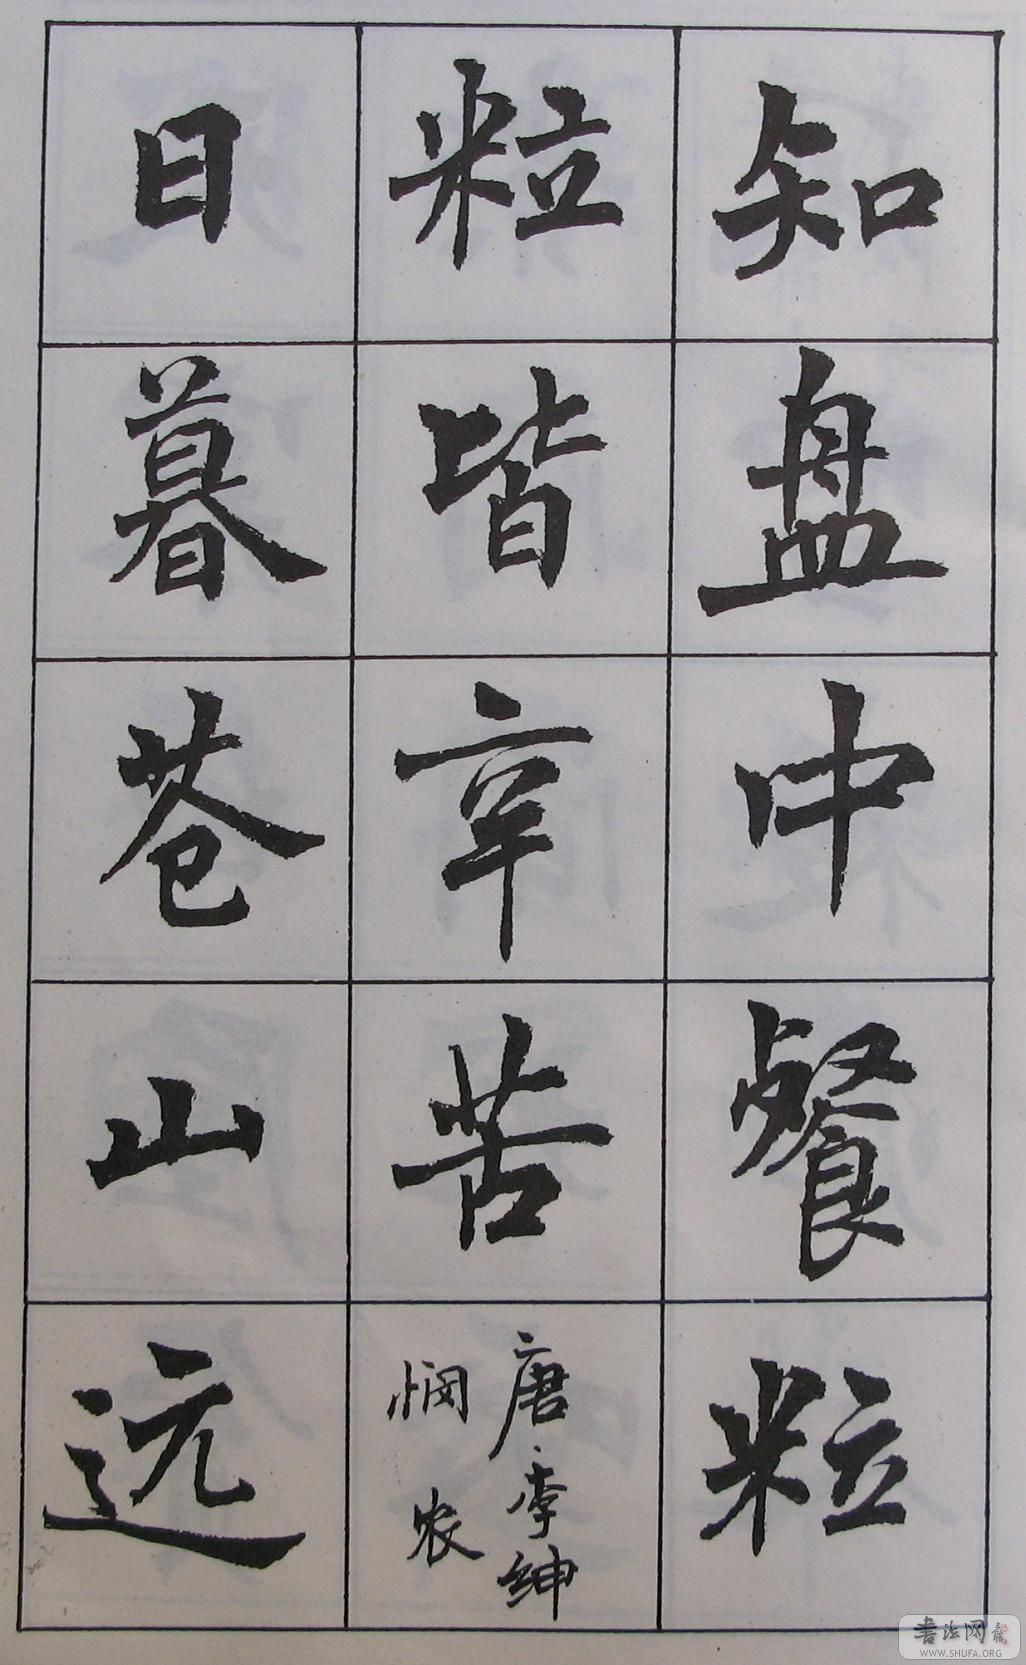 知盘中餐粒
粒皆辛苦
唐·李绅
悯农
日暮苍山远
书法网
WWW.SHUFA.ORG